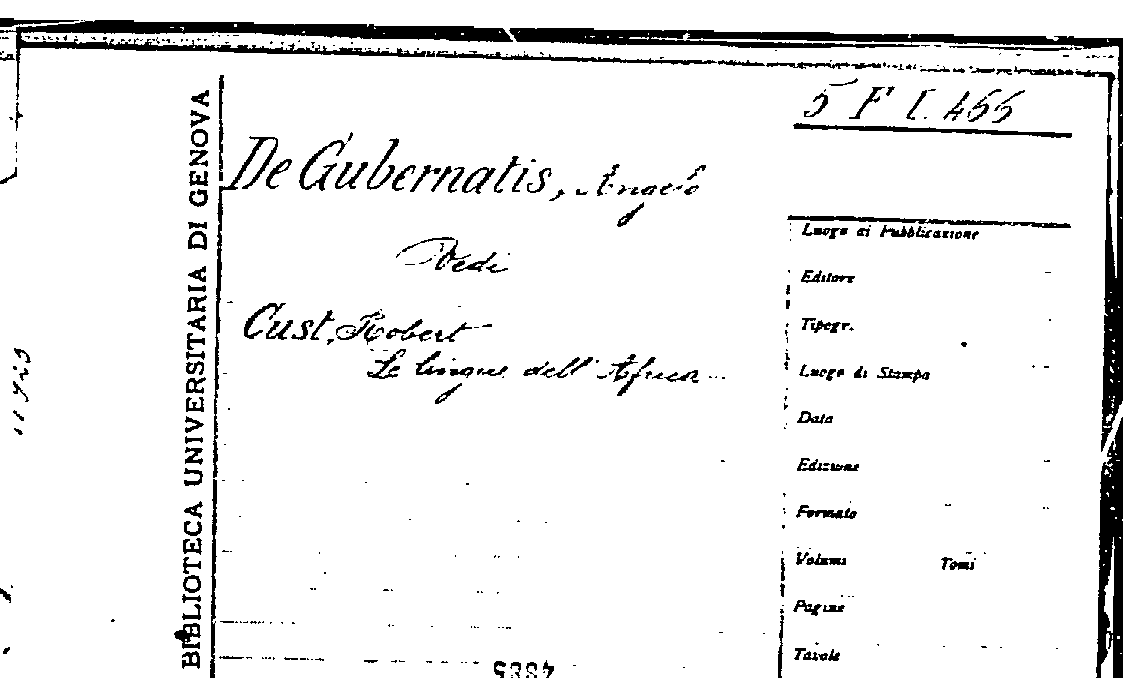 5 F I. 466
BIBLIOTECA UNIVERSITARIA DI GENOVA
De Gubernatis, Angelo
Vedi
Cust, Robert
Le lingue dell' Africa
Luogo di Pubblicazione
Editore
Tipogr.
Luogo di Stampa
Data
Edizione
Formato
Volumi Tomi
Pagine
Tavole